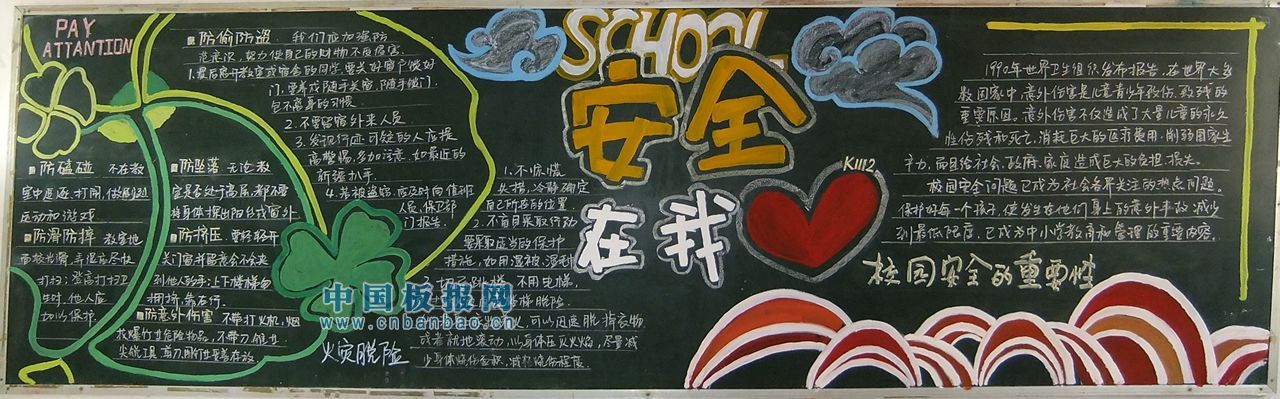 PAY
ATTANTION
防偷防盗 我们应加强防
范意识，努力使自己的财物不受侵害
1.最后离开教室或宿舍的同学，要关好窗户锁好
门，要养成随手关窗，随手锁门，
包不离身的习惯
2.不要留宿外来人员
3.发现行迹可疑的人应提
高警惕，多加注意，如最近的
新疆扒手
4.若被盗窃，应及时向值班
人员，保卫部
门报告。
防磕碰 不在教
室中追逐，打闹，做剧烈
运动和游戏
防滑防摔 教室地
打扫；登高打扫卫
生时，他人应
加以保护
防坠落 无论教
室是否处于高层，都不要
将身体探出阳台或窗外
防挤压 要轻轻开
到他人的手；上下楼梯勿
拥挤，靠右行
防意外伤害 不带打火机，烟
花爆竹等危险物品，不带刀锥等
SCHOOL
安全
在我
K1112
1.不惊慌
失措，冷静确定
自己所在的位置
2.不盲目采取行动
要采取适当的保护
措施，如用湿被，湿毛
不用电梯，
脱险。
可以迅速脱掉衣物
或者就地滚动，以身体压灭火焰，尽量减
少身体烧伤面积，减轻烧伤程度。
火灾脱险
中国板报网
www.cnbanbao.cn
1990年世界卫生组织发布报告，在世界大多
数国家中，意外伤害是儿童青少年致伤，致残的
重要原因。意外伤害不仅造成了大量儿童的永久
性伤残和死亡，消耗巨大的医疗费用，削弱国家生
产力，而且给社会，政府，家庭造成巨大的负担，损失。
校园安全问题已成为社会各界关注的热点问题。
保护好每一个孩子，使发生在他们身上的意外事故减少
到最低限度，已成为中小学教育和管理的重要内容。
校园安全的重要性